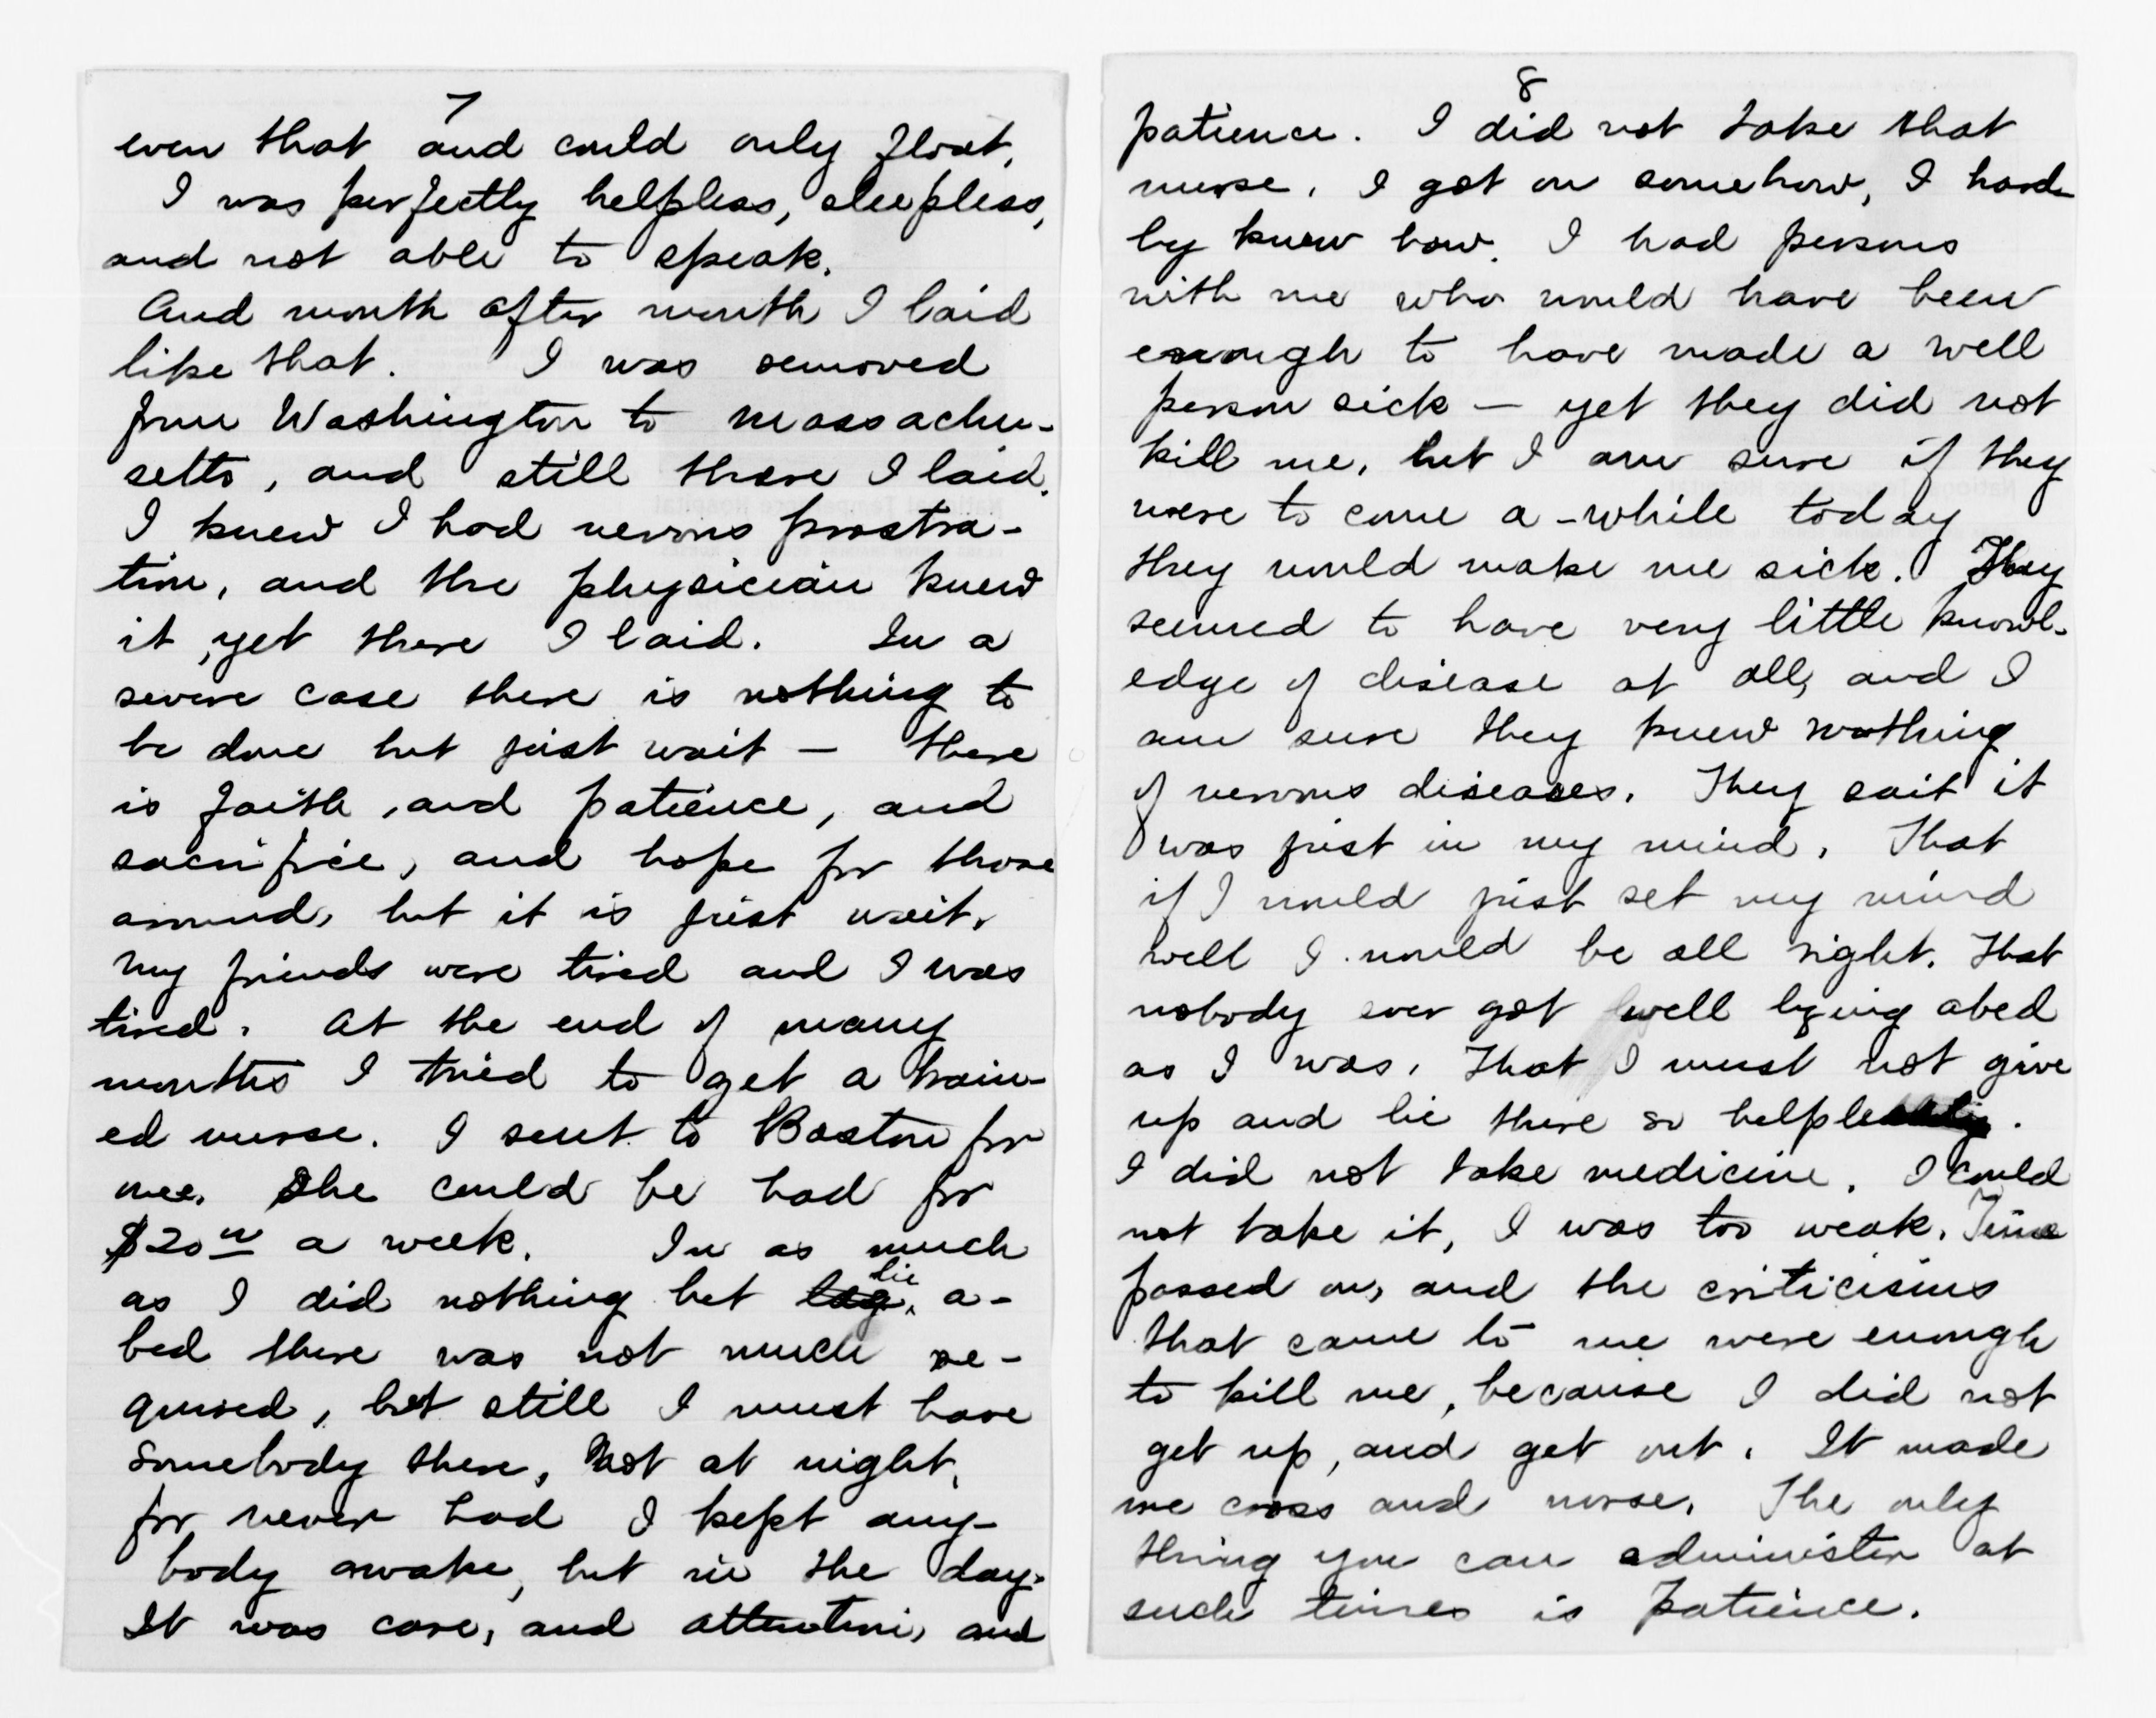 7
even that and could only float.
I was perfectly helpless, sleepless,
and not able to speak.
And month after month I laid
like that. I was removed
from Washington to Massachu-
setts, and still there I laid.
I knew I had nervous prostra-
tion, and the physician knew
it, yet there I laid. In a
severe case there is nothing to
be done but just wait — there
is faith, and patience, and
sacrifice, and hope for those
around, but it is just wait.
My friends were tired and I was
tired. At the end of many
months I tried to get a train-
ed nurse. I sent to Boston for
one. She could be had for
$20 00 a week. In as much
as I did nothing but lay lie a-
bed there was not much re-
quired, but still I must have
somebody there, Not at night,
for never had I kept any-
body awake, but in the day.
It was care, and attention, and
8
patience. I did not take that
nurse. I got on somehow, I hard-
ly knew how. I had persons
with me who would have been
enough to have made a well
person sick — yet they did not
kill me, but I am sure if they
were to come a-while today
they would make me sick. They
seemed to have very little knowl-
edge of disease at all, and I
am sure they knew nothing
of nervous diseases. They said it
was just in my mind. That
if I would just set my mind
well I would be all right. That
nobody ever got well lying abed
as I was. That I must not give
up and lie there so helpless.
I did not take medicine. I could
not take it, I was too weak. Time
passed on, and the criticisms
that came to me were enough
to kill me, because I did not
get up, and get out. It made
me cross and worse. The only
thing you can administer at
such times is Patience.